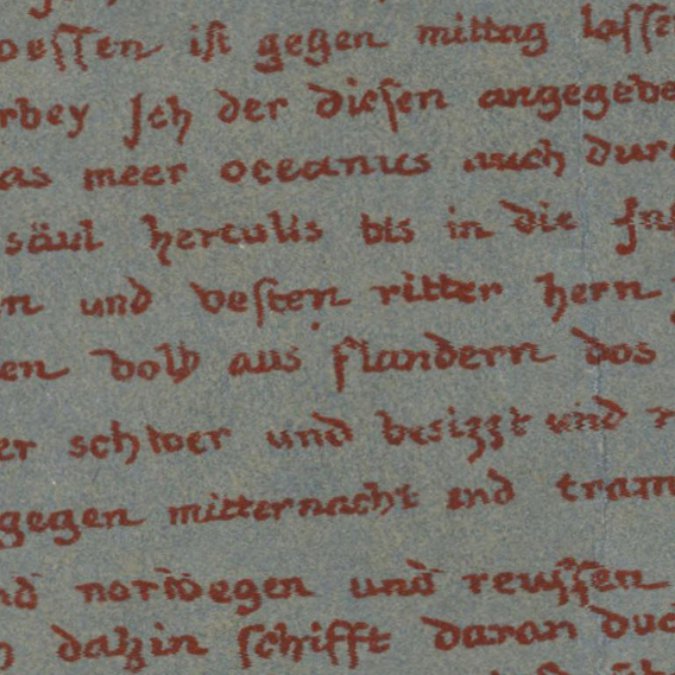 oessen ist gegen mittag
rbey Ich der diesen angegebe
as meer oceanus auch dur
säul herculis bis in die Ins
n und vesten ritter hern
en volk aus flandern dos
er schwer und besizzt und
gegen mitternacht end tram
nd norwegen und reussen
dahin schifft daran